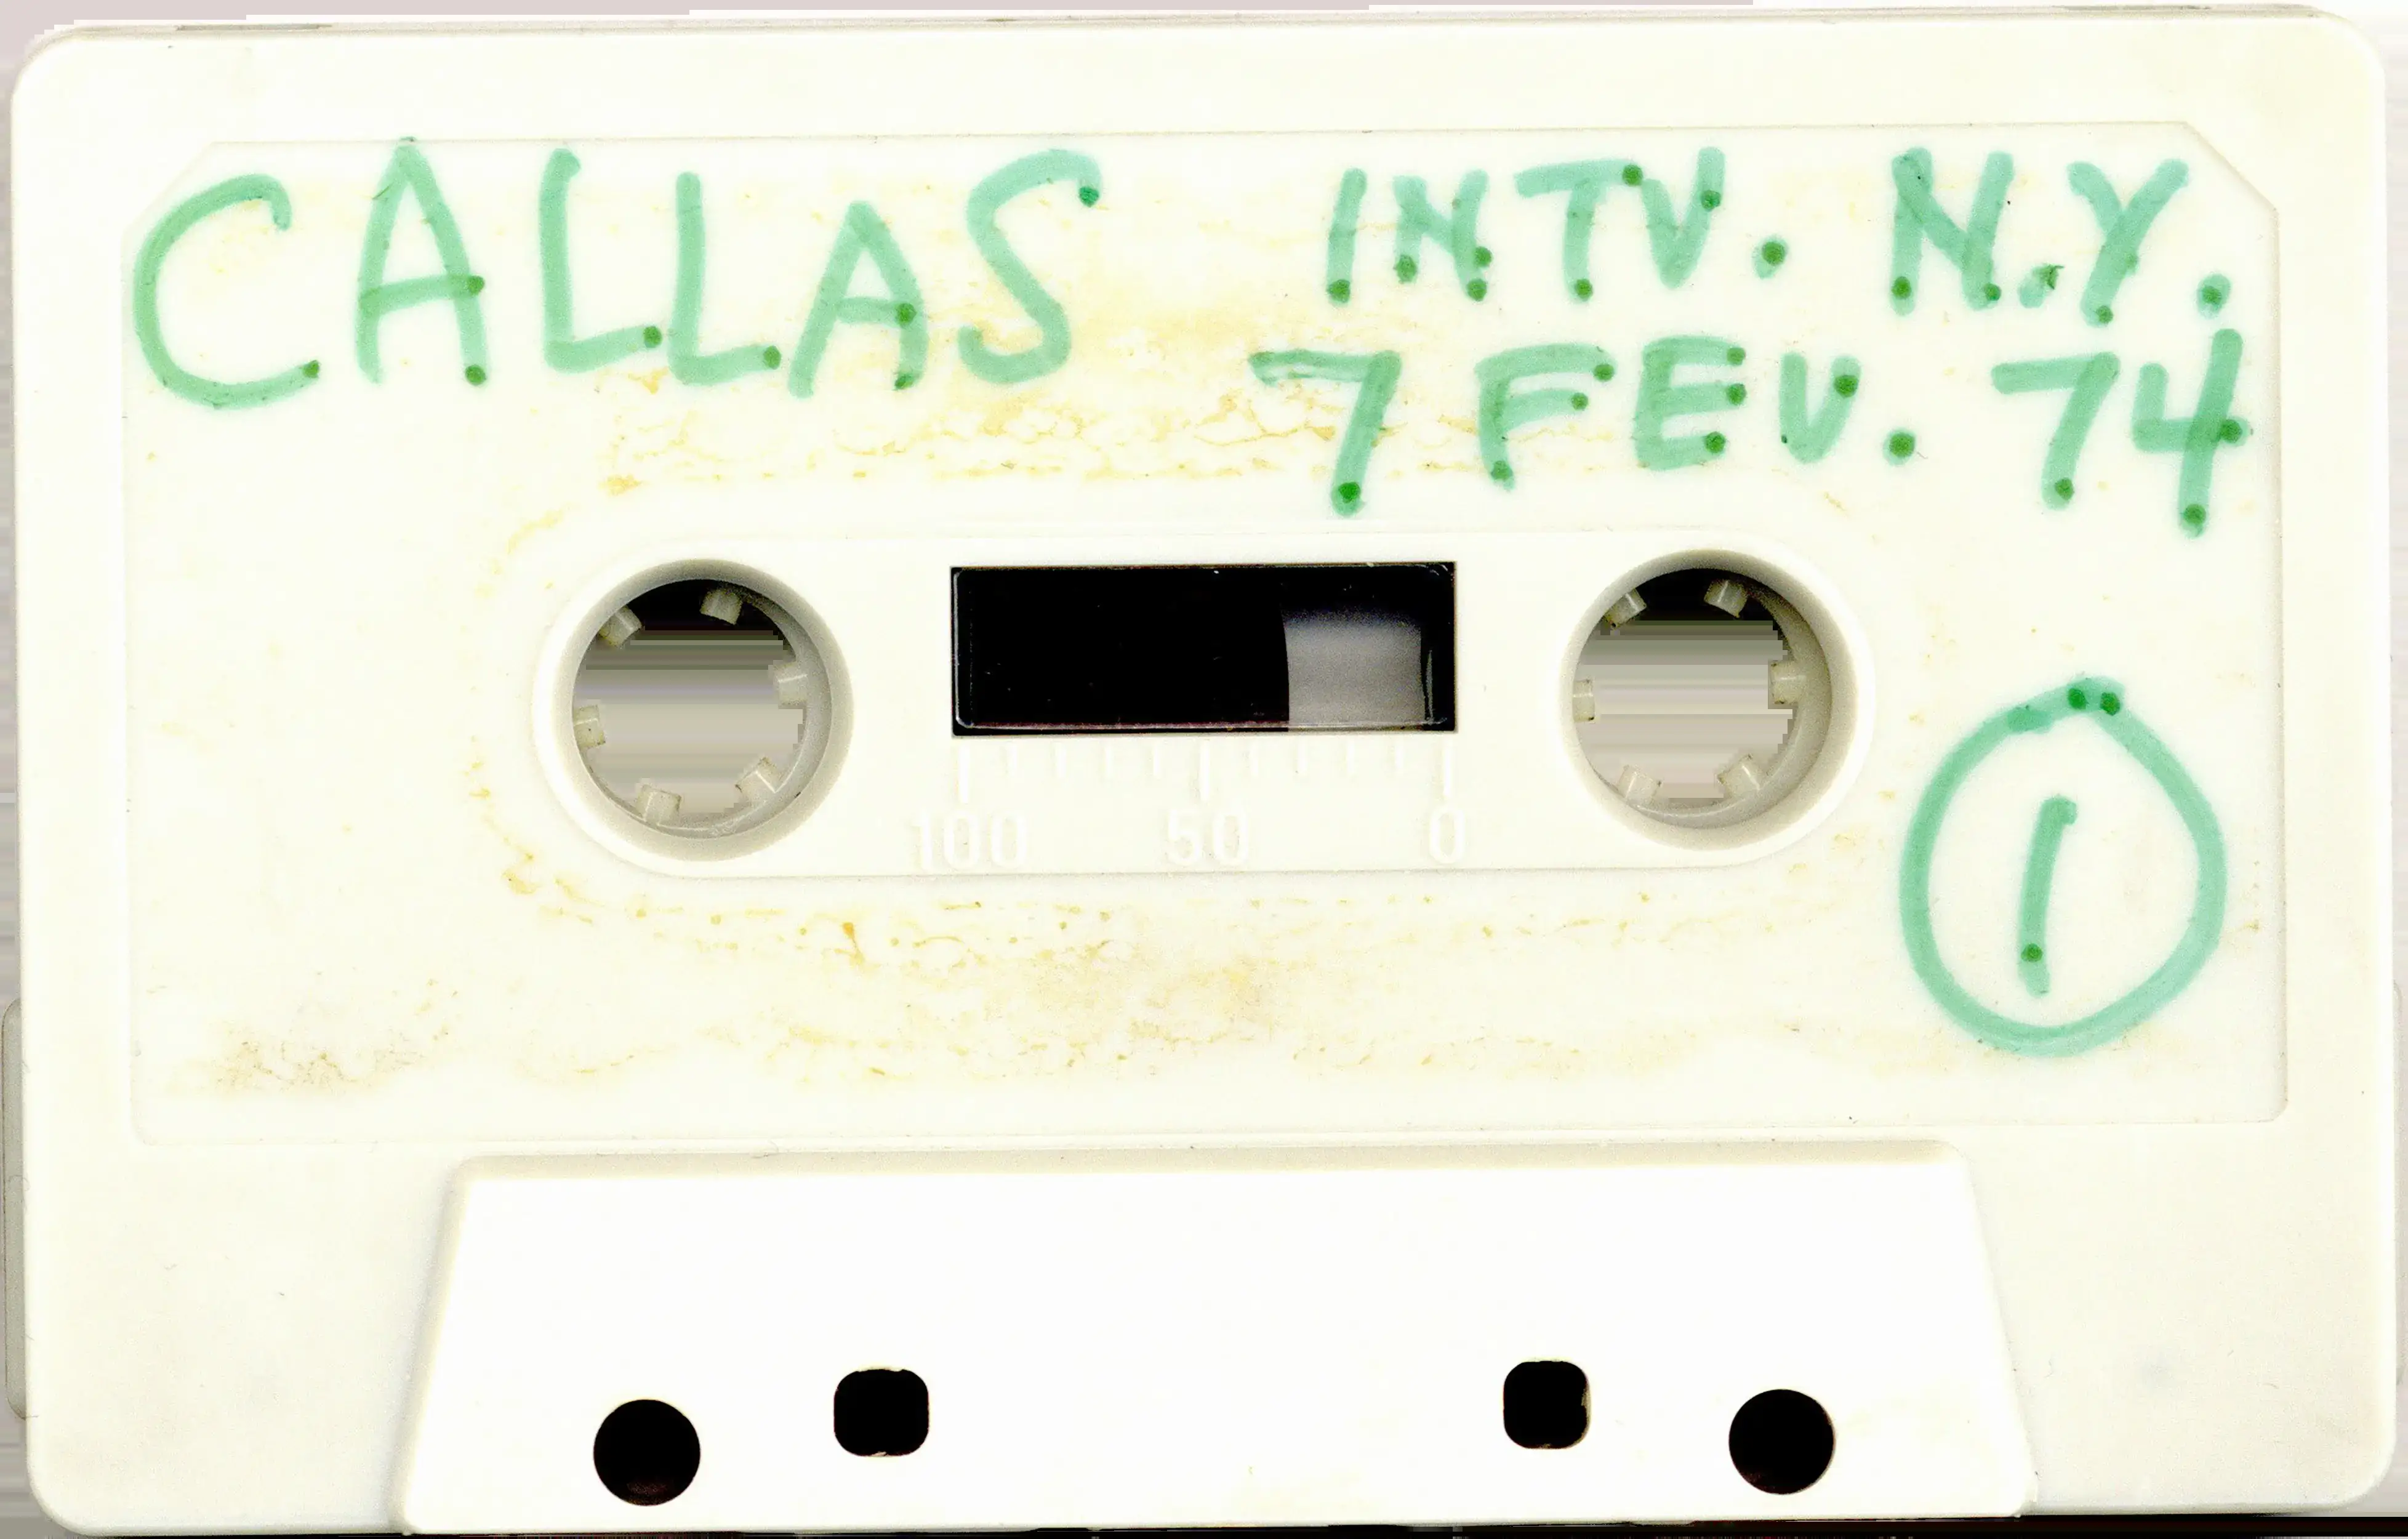 CALLAS INTV. N.Y.
7 FEV. 74
100 50 0
1